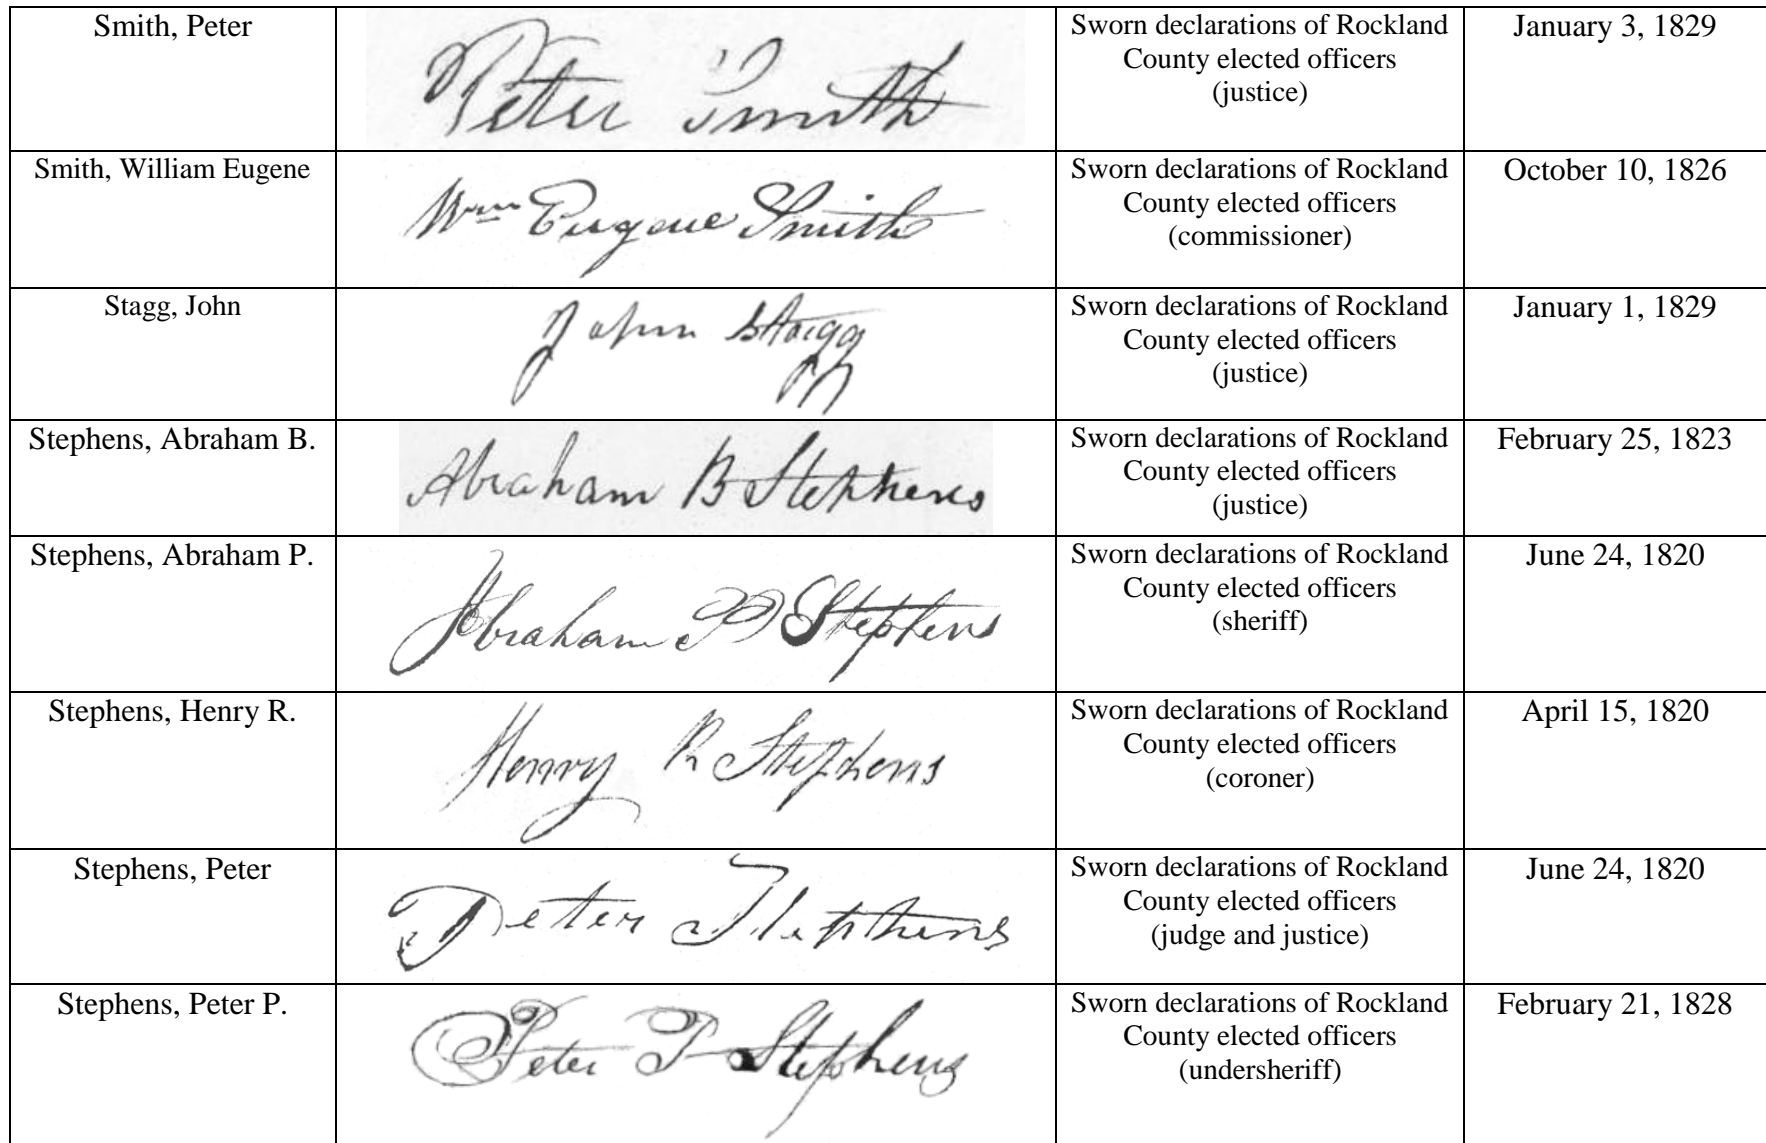 Smith, Peter
Peter Smith
Sworn declarations of Rockland
County elected officers
(justice)
January 3, 1829
Smith, William Eugene
Wm Eugene Smith
Sworn declarations of Rockland
County elected officers
(commissioner)
October 10, 1826
Stagg, John
John Stagg
Sworn declarations of Rockland
County elected officers
(justice)
January 1, 1829
Stephens, Abraham B.
Abraham B Stephens
Sworn declarations of Rockland
County elected officers
(justice)
February 25, 1823
Stephens, Abraham P.
Abraham P Stephens
Sworn declarations of Rockland
County elected officers
(sheriff)
June 24, 1820
Stephens, Henry R.
Henry R Stephens
Sworn declarations of Rockland
County elected officers
(coroner)
April 15, 1820
Stephens, Peter
Peter Stephens
Sworn declarations of Rockland
County elected officers
(judge and justice)
June 24, 1820
Stephens, Peter P.
Peter P Stephens
Sworn declarations of Rockland
County elected officers
(undersheriff)
February 21, 1828